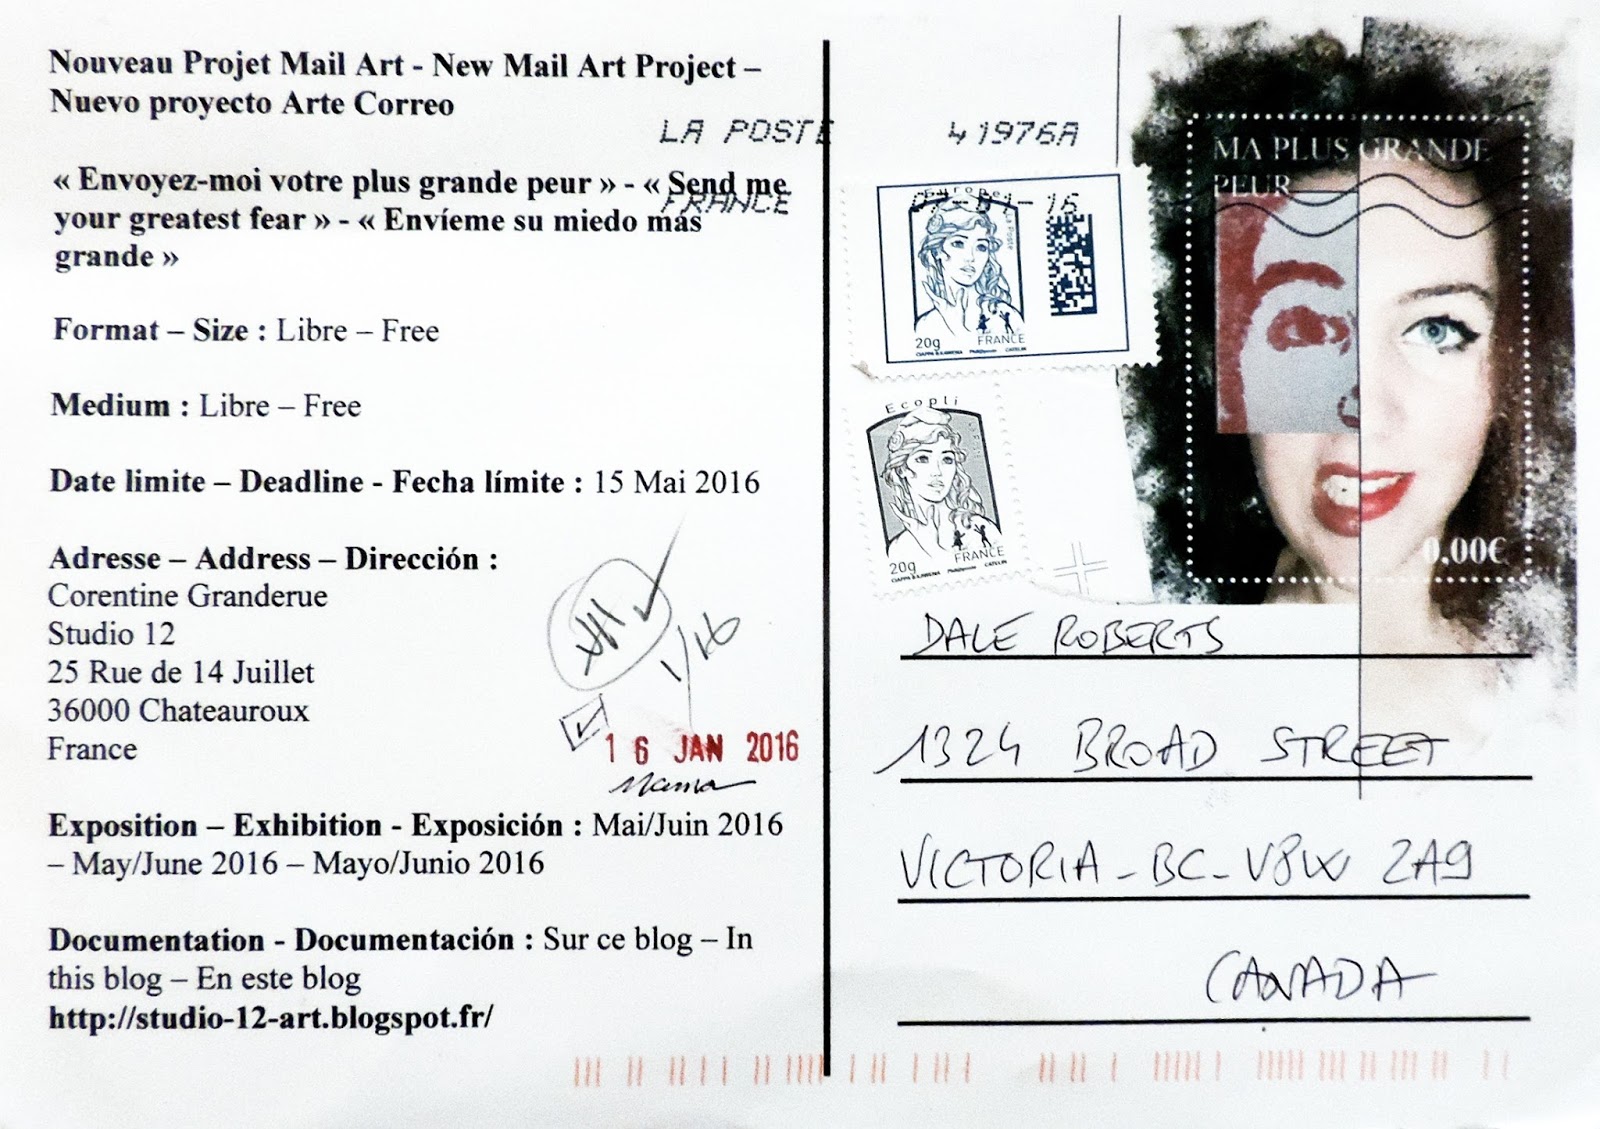 Nouveau Projet Mail Art - New Mail Art Project –
Nuevo proyecto Arte Correo
« Envoyez-moi votre plus grande peur » - « Send me
your greatest fear » - « Envíeme su miedo más
grande »
Format – Size : Libre – Free
Medium : Libre – Free
Date limite – Deadline - Fecha límite : 15 Mai 2016
Adresse – Address – Dirección :
Corentine Granderue
Studio 12
25 Rue de 14 Juillet
36000 Chateauroux
France
1/16
16 JAN 2016
Exposition – Exhibition - Exposición : Mai/Juin 2016
– May/June 2016 – Mayo/Junio 2016
Documentation - Documentación : Sur ce blog – In
this blog – En este blog
http://studio-12-art.blogspot.fr/
LA POSTE 41976A
FRANCE
Europe
La Poste
20g FRANCE
CIAPPA & KAWENA Phil@poste CATELIN
Ecopli
20g FRANCE
CIAPPA & KAWENA Phil@poste CATELIN
MA PLUS GRANDE
PEUR
0,00€
DALE ROBERTS
1324 BROAD STREET
VICTORIA - BC - V8W 2A9
CANADA